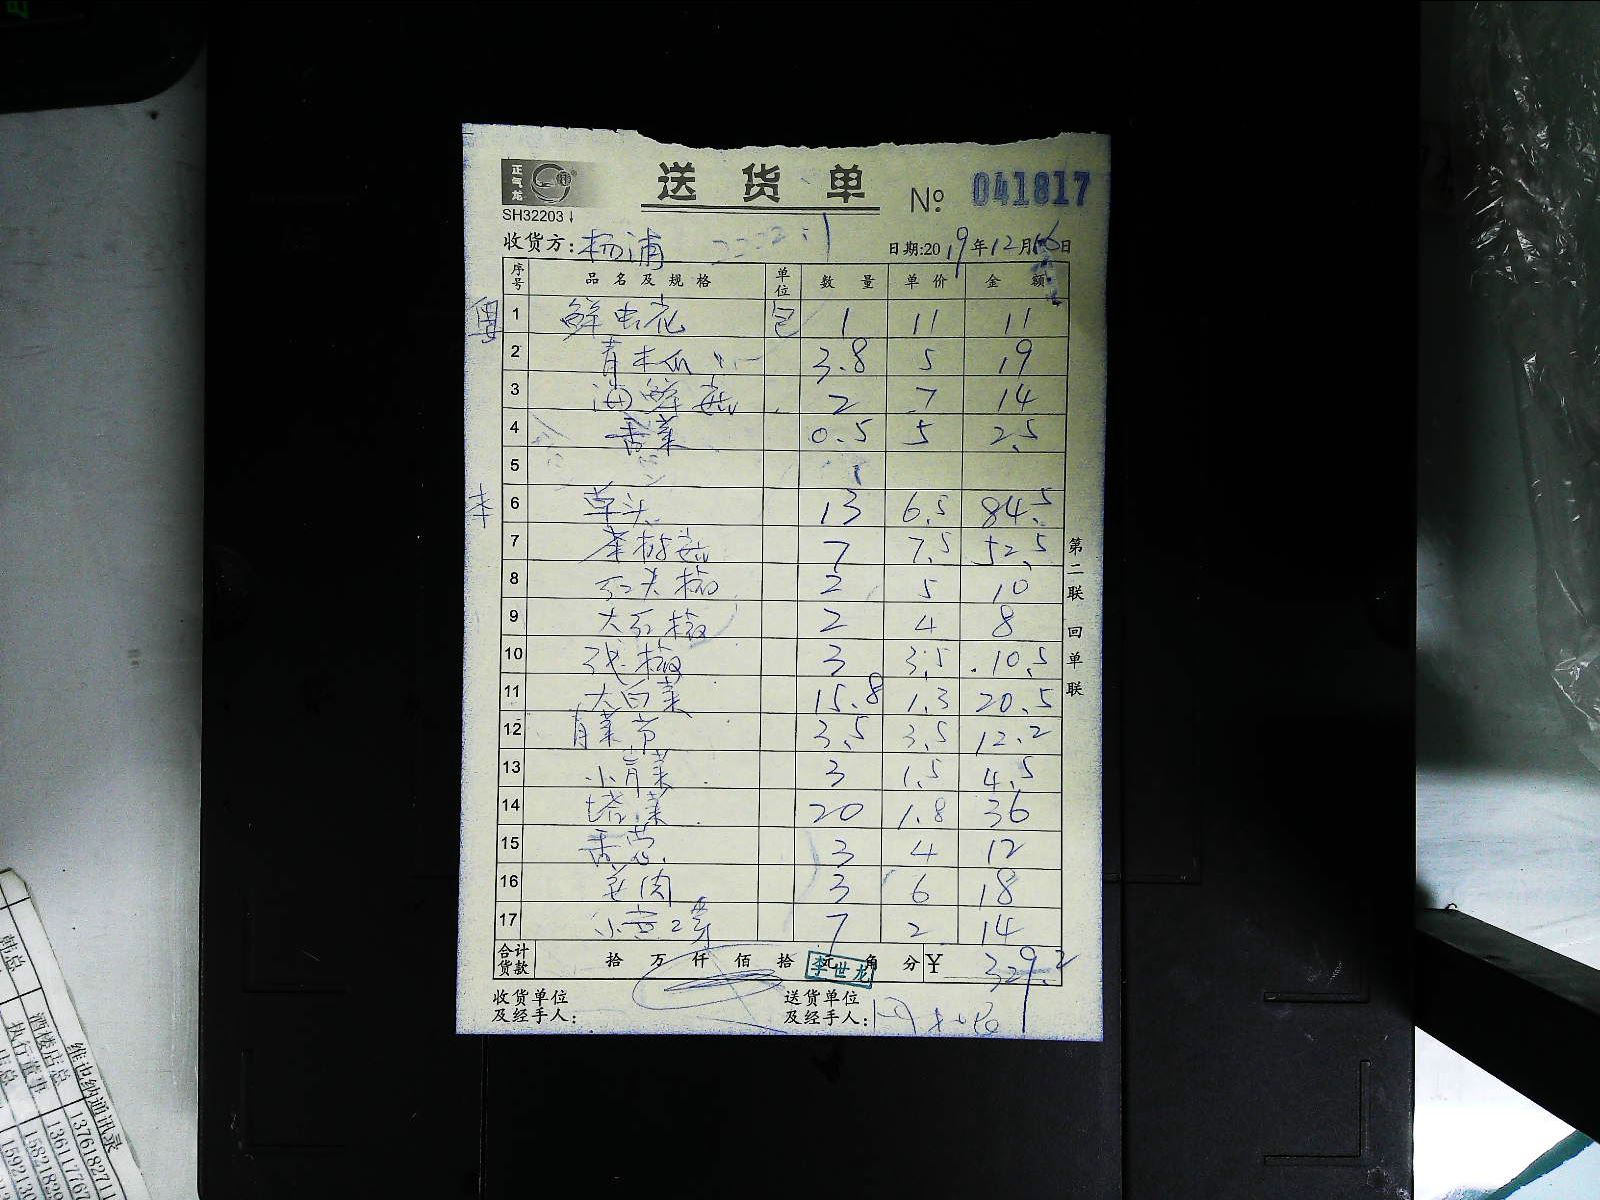 正气龙
送货单 № 041817
SH32203
收货方: 杨浦 日期:2019年12月16日
序号 品名及规格 单位 数量 单价 金额
粤 1 鲜虫花 包 1 11 11
2 青木瓜 3.8 5 19
3 海鲜菇 2 7 14
4 香菜 0.5 5 2.5
5
本 6 草头 13 6.5 84.5
7 茶树菇 7 7.5 52.5
8 红尖椒 2 5 10
9 大红椒 2 4 8
10 线椒 3 3.5 10.5
11 大白菜 15.8 1.3 20.5
12 青菜 3.5 3.5 12.2
13 小青菜 3 1.5 4.5
14 塔菜 20 1.8 36
15 香葱 3 4 12
16 姜肉 3 6 18
17 小黄芽 7 2 14
合计货款 拾 万 仟 佰 拾 元 角 分 ¥ 329.2
李世龙
收货单位及经手人: 送货单位及经手人:
第二联 回单联
维也纳通讯录
酒楼店总 13761827
执行董事 13611776
韩总 1582182
店总 1592130